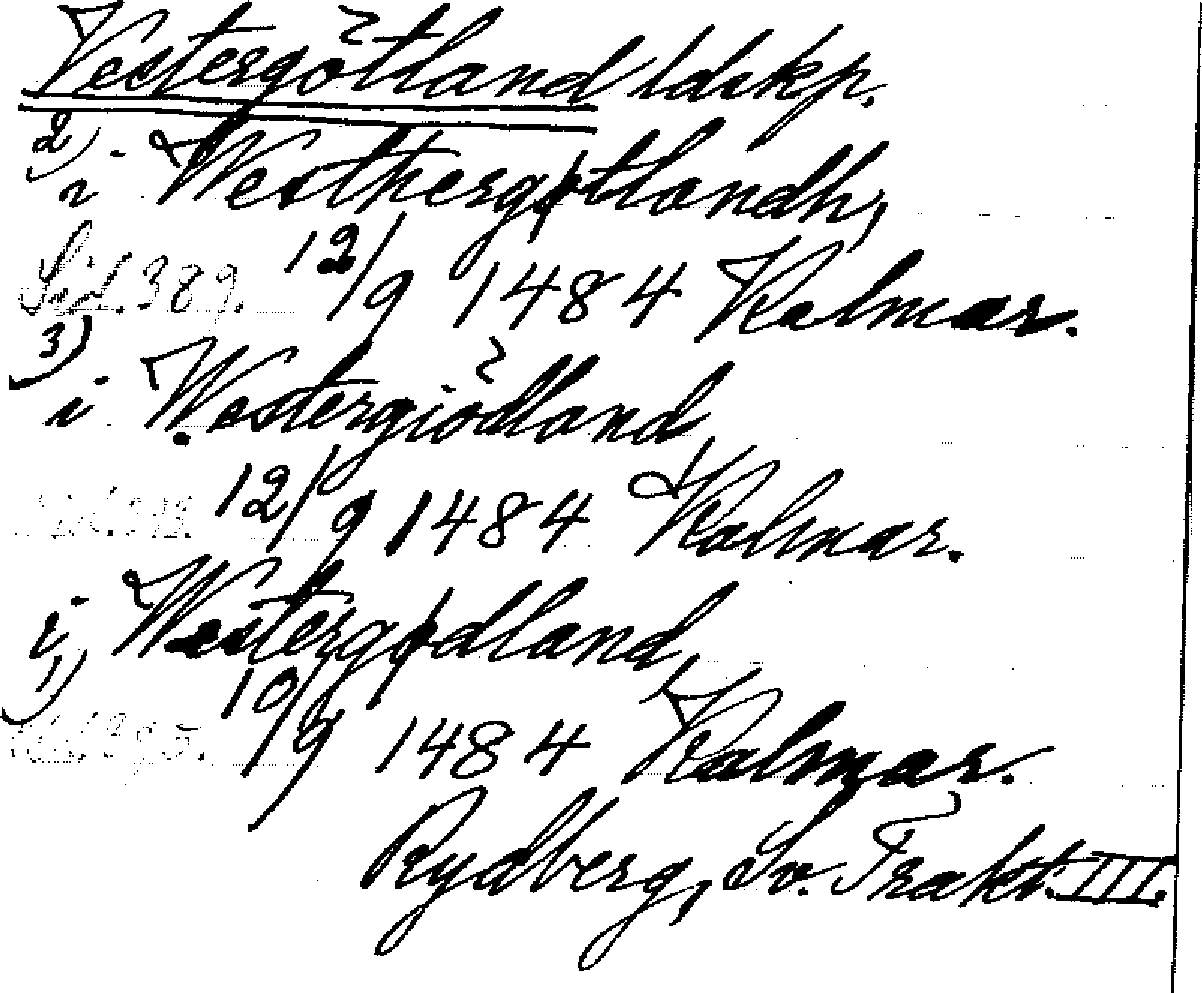 Vestergötland ldskp.
2) i Westhergøtlandh,
Sid. 389. 12/9 1484 Kalmar.
3) i Westergiödland
12/9 1484 Kalmar.
i Westergødland,
1) Sid. 395. 10/9 1484 Kalmar.
Rydberg, Sv. Trakt. III.